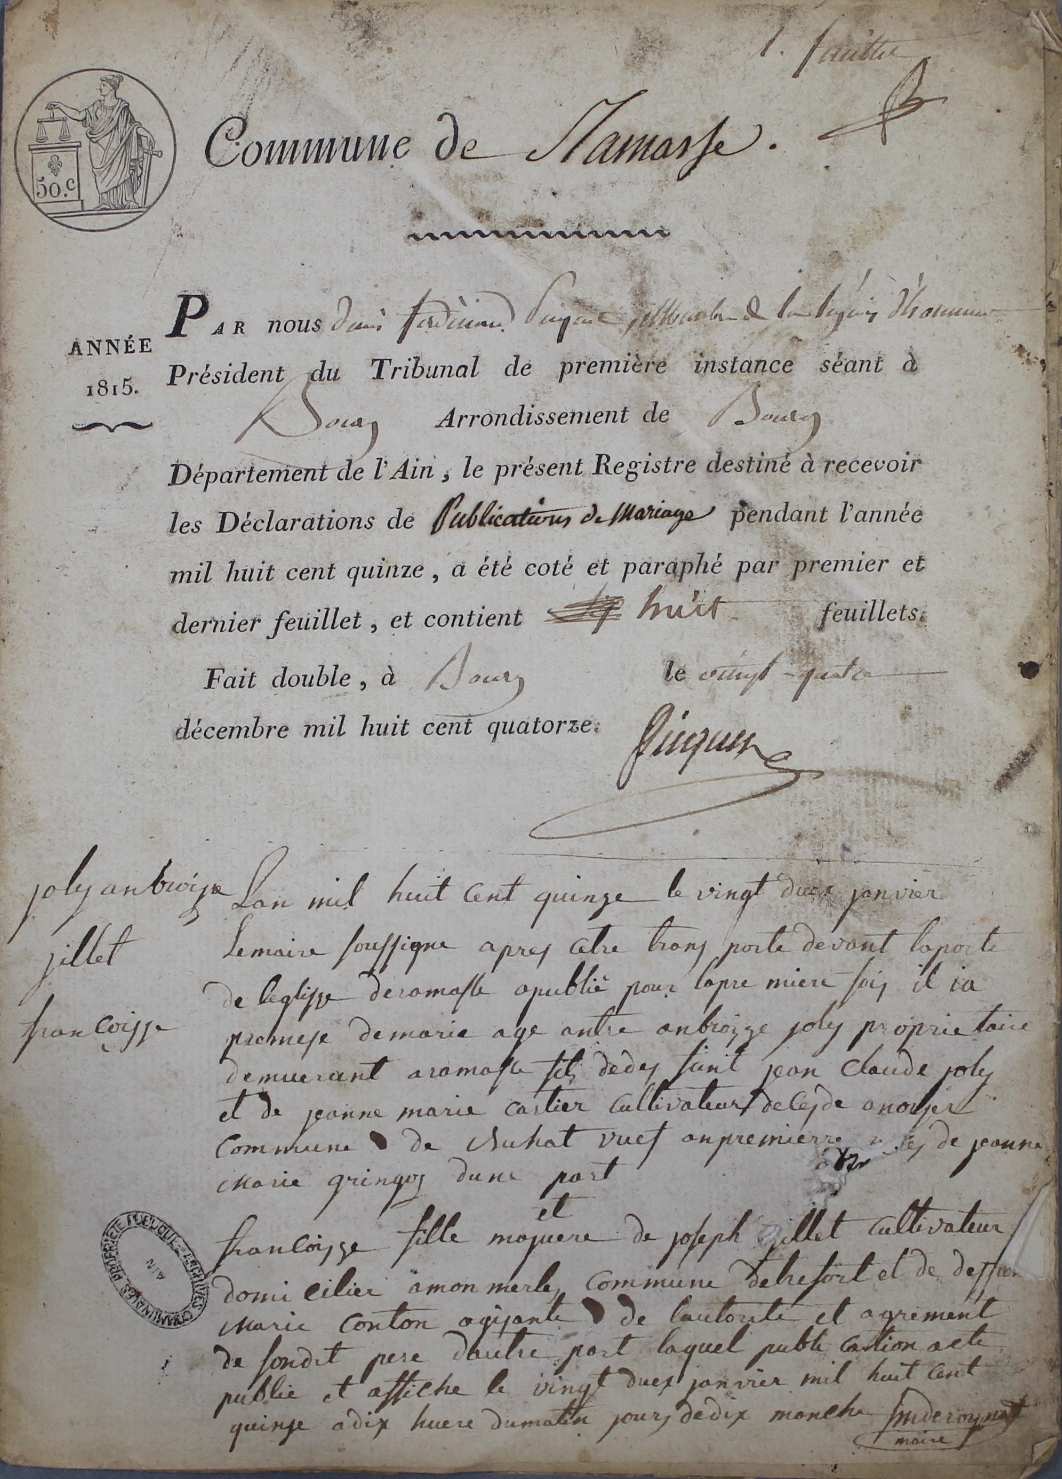 1.
50.c
Commune de Ramasse.
ANNÉE
1815.
PAR nous Ferdinand Picquet Membre de la légion d'honneur
Président du Tribunal de première instance séant à
Bourg Arrondissement de Bourg
Département de l'Ain, le présent Registre destiné à recevoir
les Déclarations de Publications de Mariage pendant l'année
mil huit cent quinze, a été coté et paraphé par premier et
dernier feuillet, et contient huit feuillets.
Fait double, à Bourg le vingt-quatre
décembre mil huit cent quatorze.
Picquet
joly anbroize
jillet
francoisse
Lan mil huit cent quinze le vingt duex janvier
Lemaire soussigne apres etre trans porte devant laporte
de leglisse deramasse apublié pour lapre miere fois il ia
promese demaria age antre anbroizze joly proprietaire
demuerant aramasse fils dedes funt jean claude joly
et de jeanne marie cartier cultivateur decede anoyer
commune de vuef anpremierre de jeanne
Marie gringoz dune part
et
francoizze fille majuere de joseph jillet cultivateur
domi cilier amonmerle commune detrefort et de
Marie conton agisante de lautorite et agrement
de sondit pere dautre part laquel publi castion aete
publie et affiche le vingt duex janvier mil huit cent
quinse adix huere dumatin jours dedix manche
maire
PROPRIETE PUBLIQUE - ARCHIVES COMMUNALES
AIN